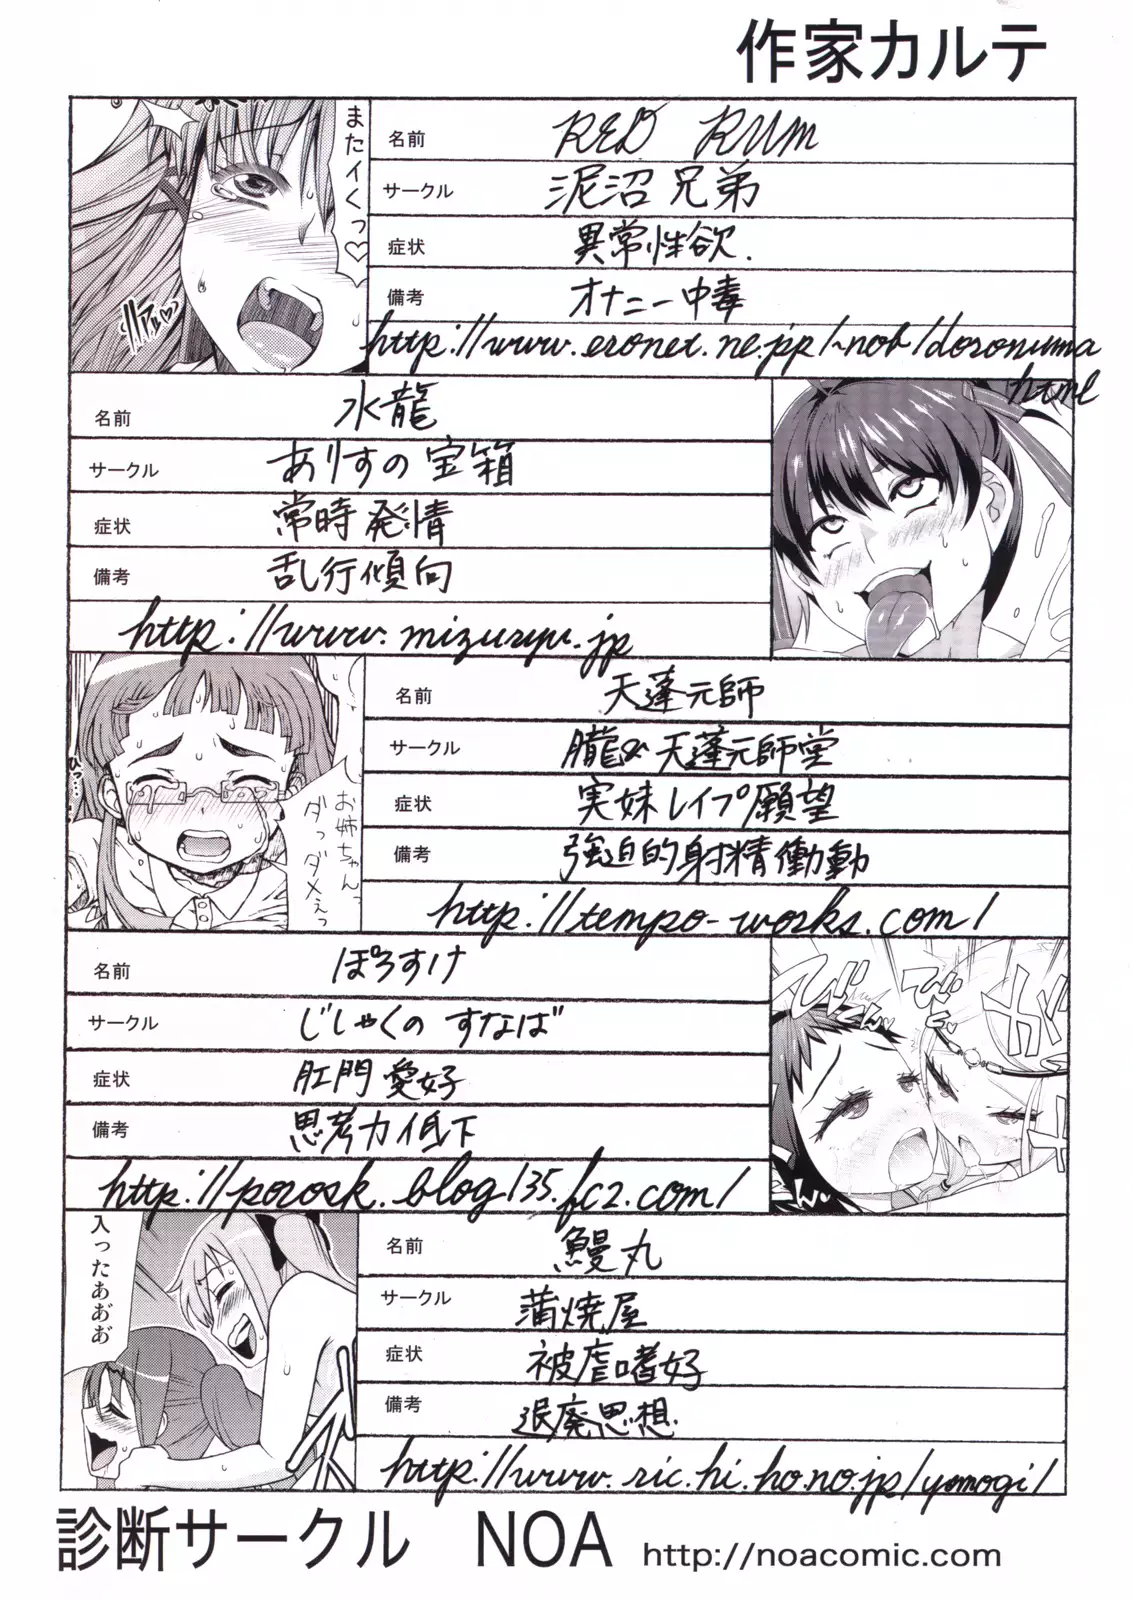 作家カルテ
名前 RED RUM
サークル 泥沼兄弟
症状 異常性欲.
備考 オナニー中毒
http://www.eronet.ne.jp/~nob/doronuma
html
名前 水龍
サークル ありすの宝箱
症状 常時発情
備考 乱行傾向
http://www.mizuryu.jp
名前 天蓬元師
サークル 朧&天蓬元師堂
症状 実妹レイプ願望
備考 強迫的射精働動
http://tempo-works.com/
名前 ぽろすけ
サークル じしゃくのすなば
症状 肛門愛好
備考 思考力低下
http://porosk.blog135.fc2.com/
名前 鰻丸
サークル 蒲焼屋
症状 被虐嗜好
備考 退廃思想.
http://www.ric.hi.ho.no.jp/yomogi/
診断サークル NOA http://noacomic.com